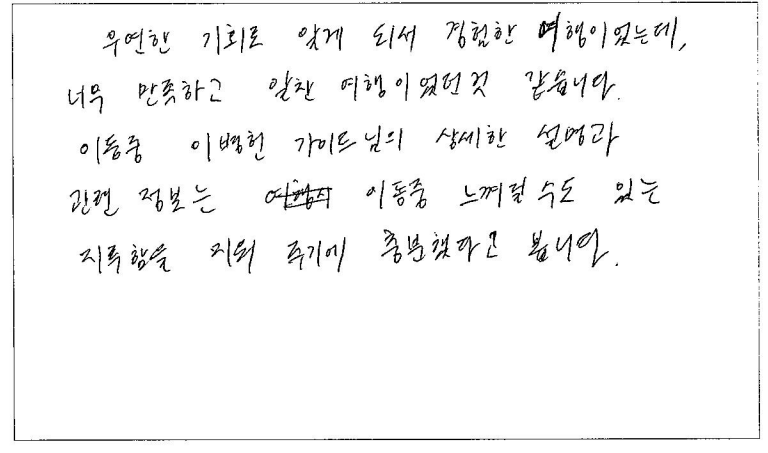 우연한 기회로 알게 되서 경험한 여행이었는데,
너무 만족하고 알찬 여행이었던것 같습니다.
이동중 이병헌 가이드님의 상세한 설명과
관련 정보는 이동중 느껴질 수도 있는
지루함을 지워 주기에 충분했다고 봅니다.